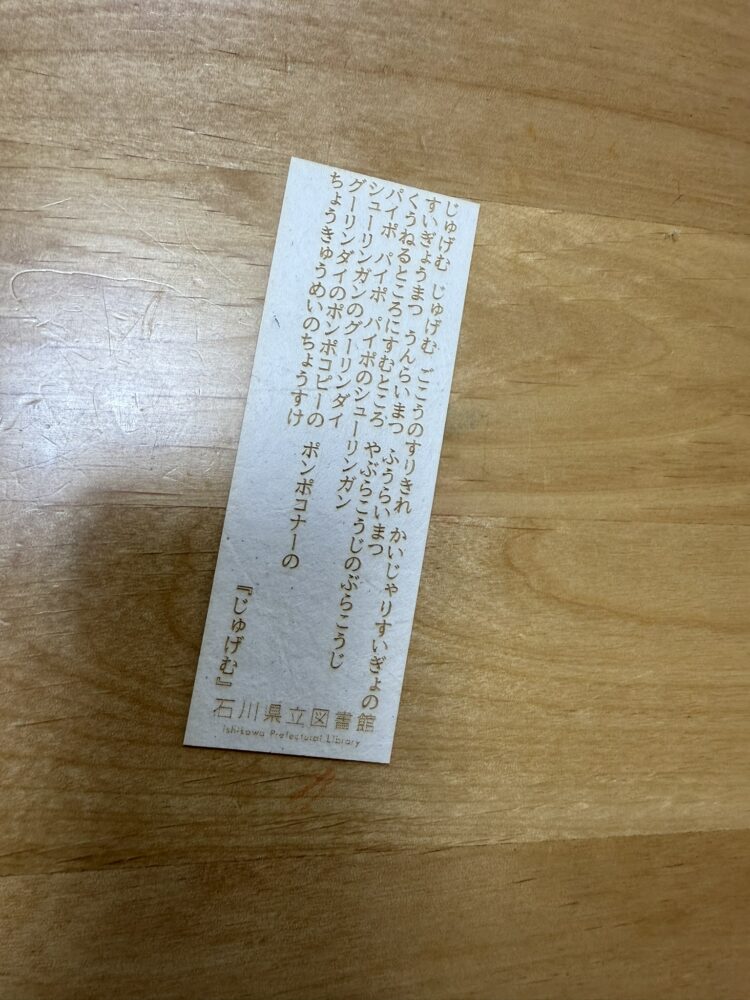 じゅげむ じゅげむ ごこうのすりきれ かいじゃりすいぎょの
すいぎょうまつ うんらいまつ ふうらいまつ
くうねるところにすむところ やぶらこうじのぶらこうじ
パイポ パイポ パイポのシューリンガン
シューリンガンのグーリンダイ
グーリンダイのポンポコピーの ポンポコナーの
ちょうきゅうめいのちょうすけ
『じゅげむ』
石川県立図書館
Ishikawa Prefectural Library